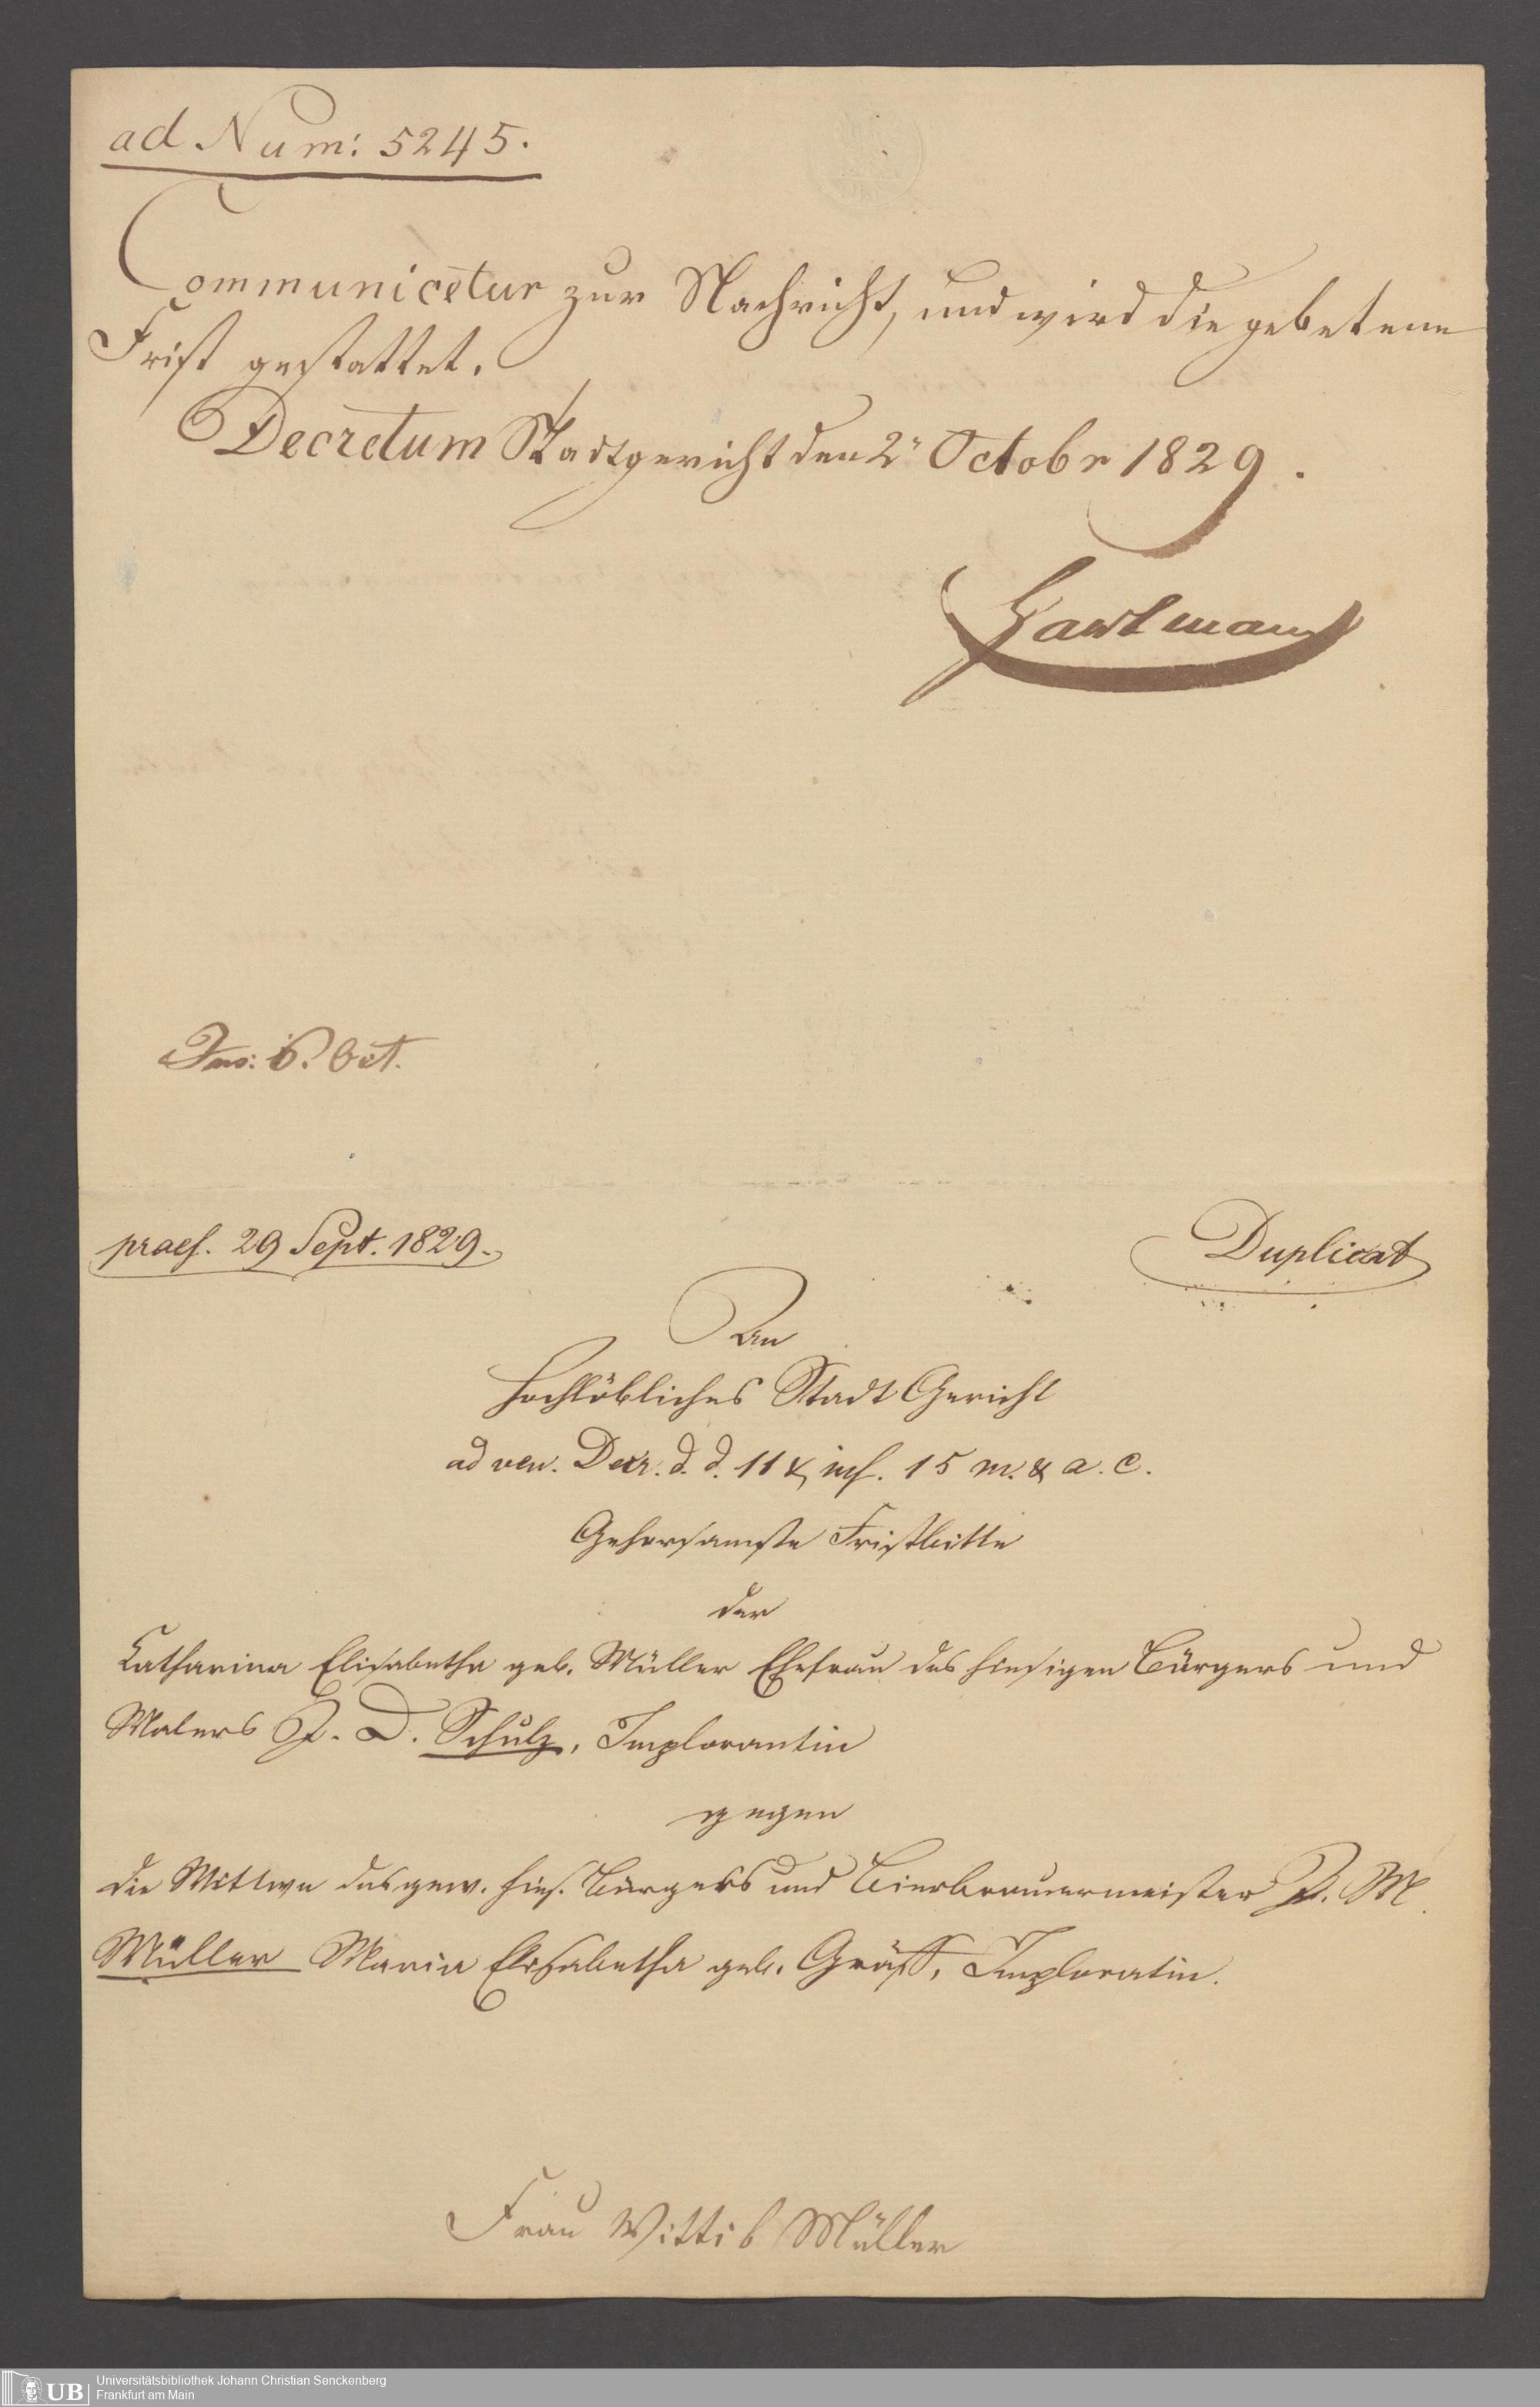 ad Num: 5245.
Communicetur zur Nachricht, und wird die gebetene
Frist gestattet.
Decretum Stadtgericht den 2ⁿ Octobr 1829.
Hartmann
Ins: 6. Oct.
praes. 29 Sept. 1829.
Duplicat
An
Hochlöbliches Stadt Gericht
ad ven. Decr. d. d. 11 & ins. 15 m. & a. c.
Gehorsamste Fristbitte
der
Catharina Elisabetha geb. Müller Ehefrau des hiesigen Bürgers und
Malers J. D. Schulz, Implorantin
gegen
die Wittwe des gew. hies. Bürgers und Bierbrauermeister J. M.
Müller Maria Elisabetha geb. Gräff, Imploratin.
Frau Wittib Müller
UB
Universitätsbibliothek Johann Christian Senckenberg
Frankfurt am Main